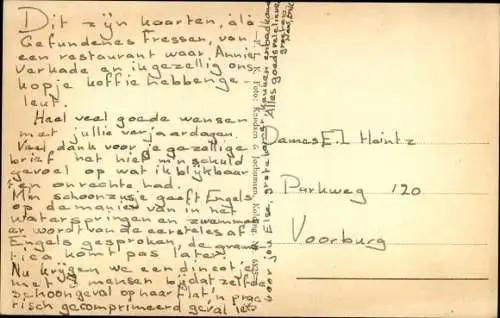 Dit zijn kaarten, als
Gefundenes Fressen, van
een restaurant waar Annie
Verkade en ik gezellig ons
kopje koffie hebben ge-
leut.
Heel veel goede wensen
met jullie verjaardagen.
Veel dank voor de gezellige
brief het hief m'n schuld
gevoel op wat ik blijkbaar
ten onrechte had.
M'n schoonzusje geeft Engels
op de manier van in het
water springen en zwemmen
er wordt van de eerste les af
Engels gesproken, de gram
tica komt pas later.
Nu krijgen we een directie
met 3 mensen bij dat zelfde
schoongeval op haar flat 'n prac
tisch gecomprimeerd geval
voor jou Else, gratekens, keuken en badkamer
Alles goeds
Foto: Knudsen & Jochumsen, Kolding.
Dames E.L Heintz
Parkweg 120
Voorburg